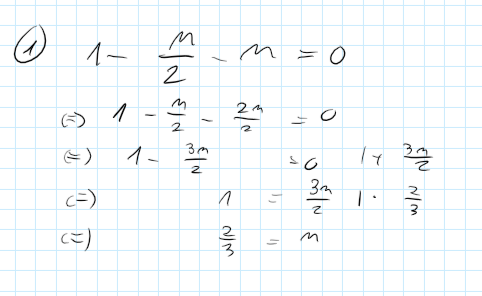 ① 1 - m/2 - m = 0
(=) 1 - m/2 - 2m/2 = 0
(=) 1 - 3m/2 = 0 | + 3m/2
(=) 1 = 3m/2 | · 2/3
(=) 2/3 = m